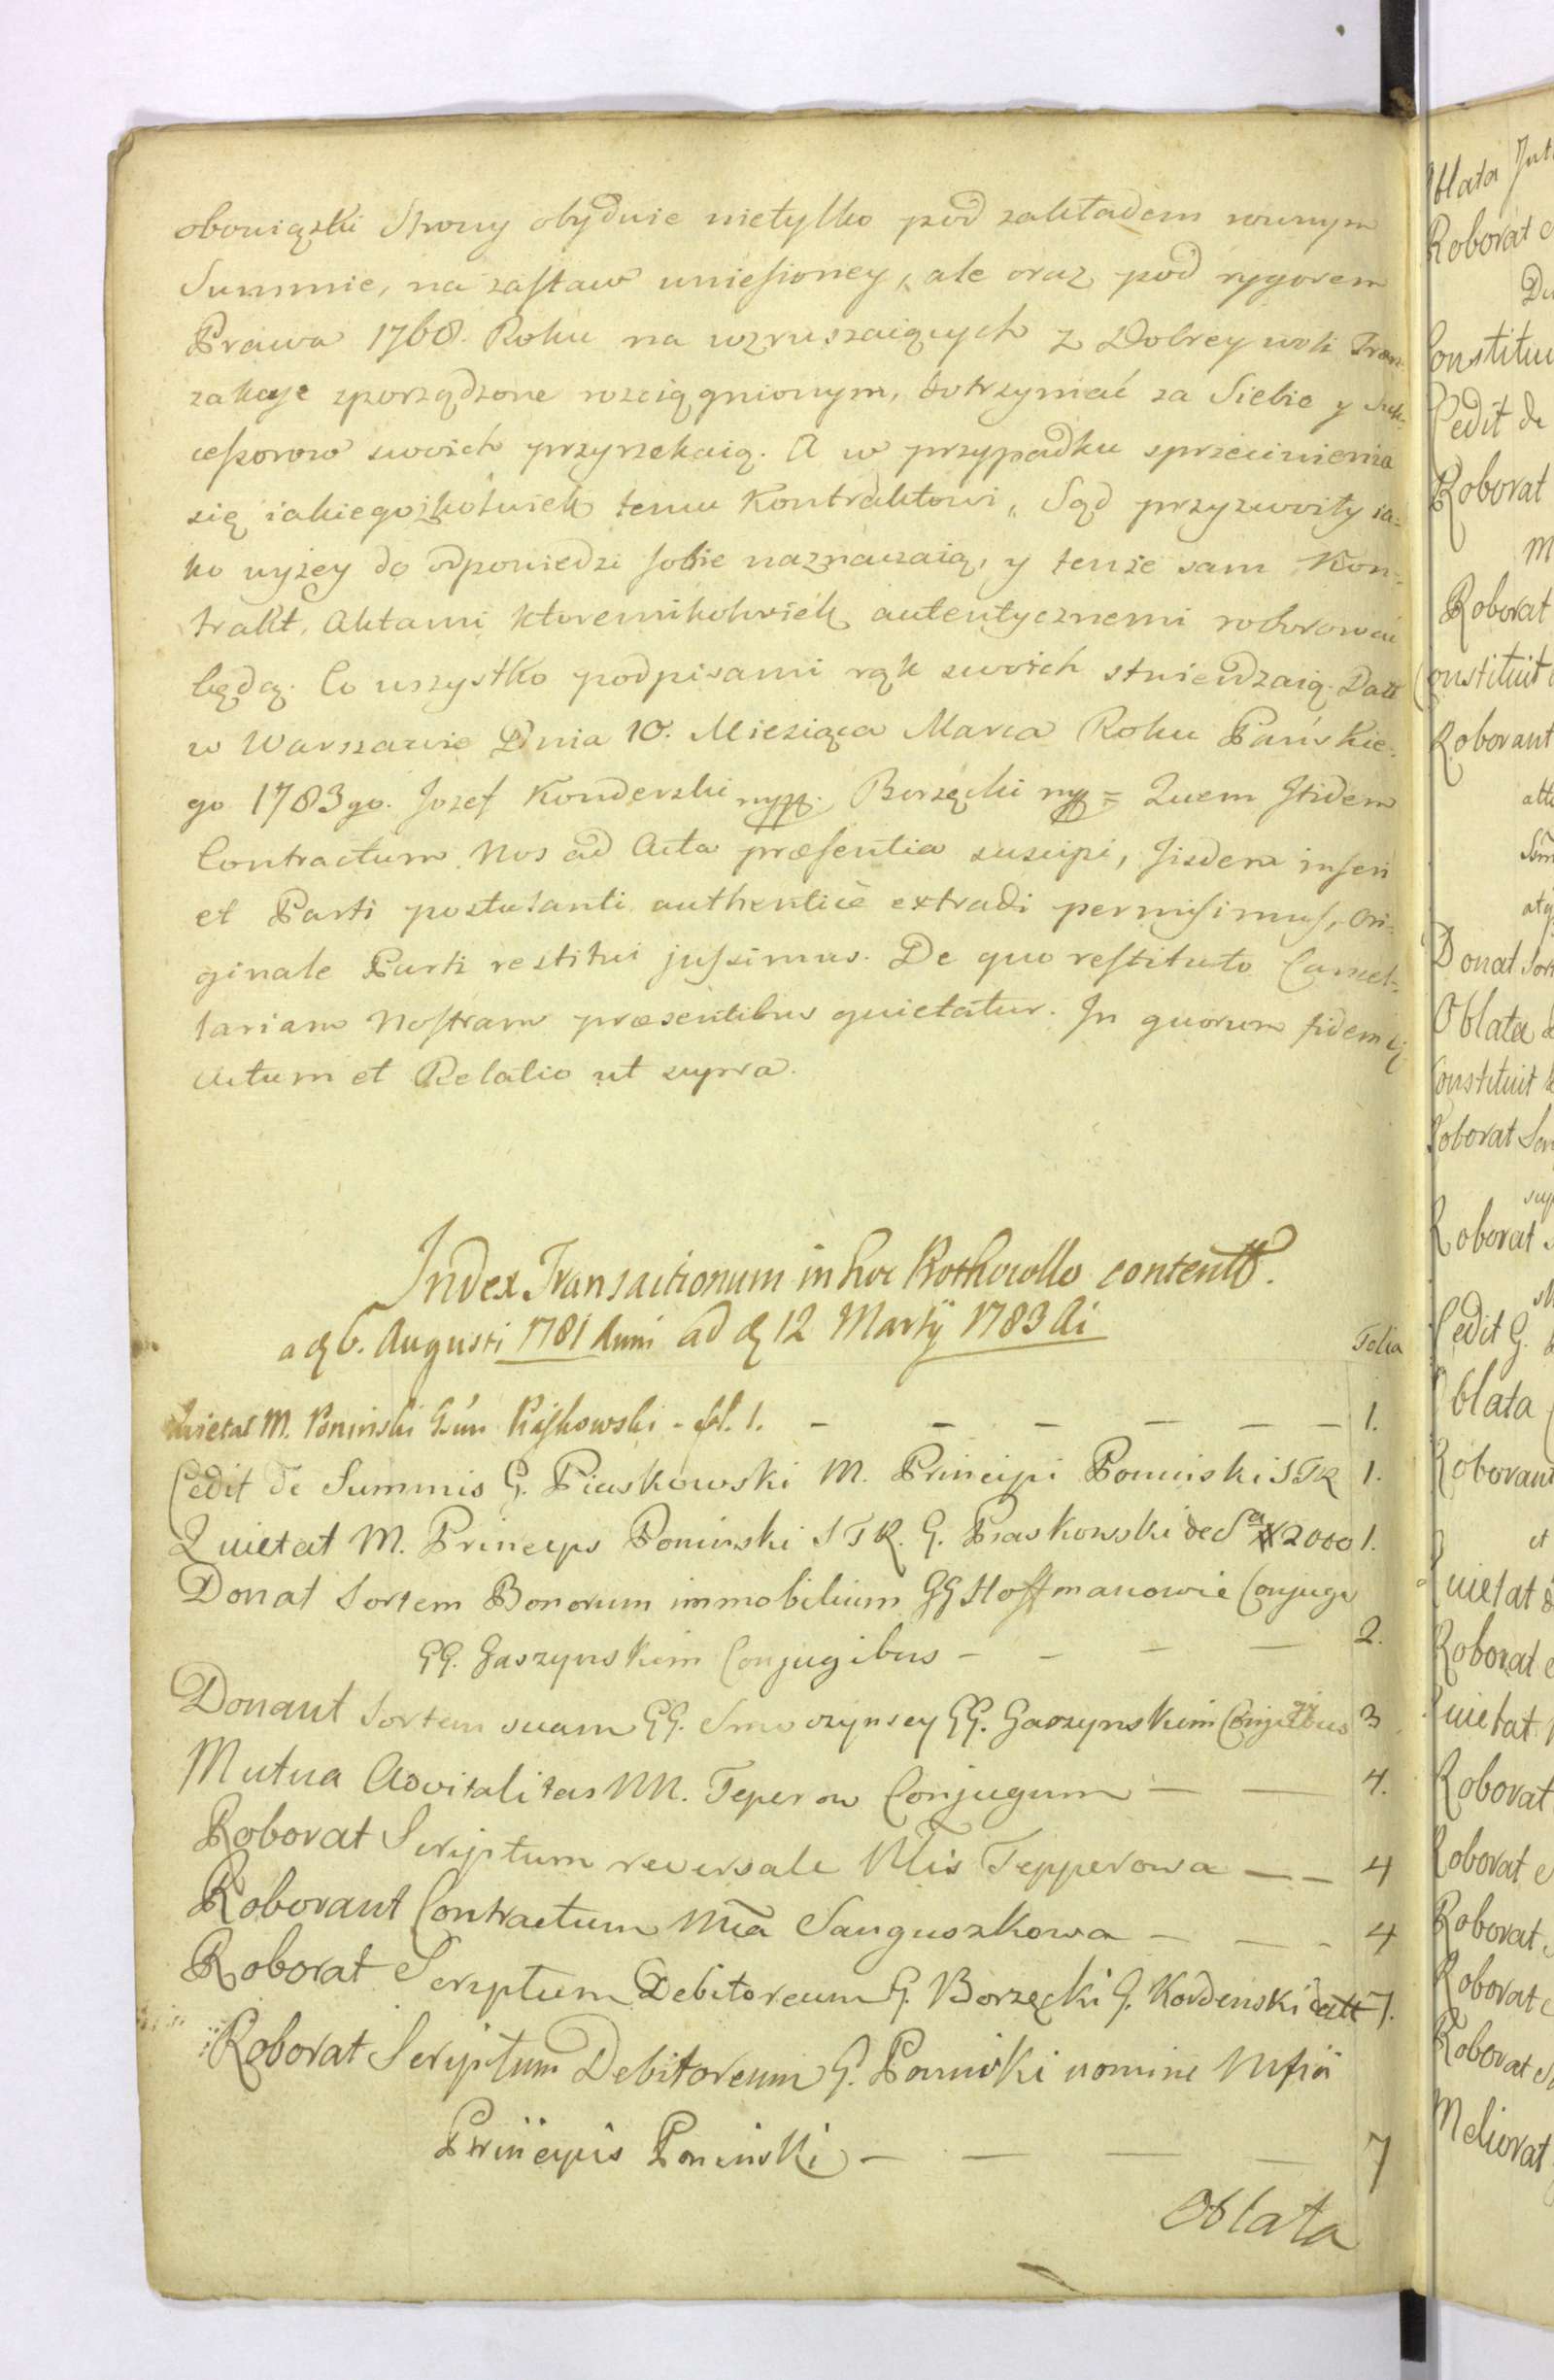 obowiązki Strony obydwie nietylko pod zakładem rownym
Summie, na zastaw uniesioney, ale oraz pod rygorem
Prawa 1768. Roku na wzruszaiących z Dobrey woli Tran-
zakcye zporządzone rozciągnionym, dotrzymać za Siebie y Suk-
cessorow swoich przyrzekaią. A w przypadku sprzeciwienia
się iakiegożkolwiek temu Kontraktowi, Sąd przyzwoity ia-
ko wyżey do odpowiedzi sobie naznaczaią, y tenże sam Kon-
trakt, Aktami ktoremikolwiek autentycznemi roborować
będą. Co wszystko podpisami rąk swoich stwierdzaią. Datt
w Warszawie Dnia 10. Miesiąca Marca Roku Pańskie-
go 1783go. Jozef Konderski mpp. Borzęcki mp = Quem Itidem
Contractum Nos ad Acta præsentia suscipi, Iisdem inseri
et Parti postulanti authenticè extradi permisimus, Ori-
ginale Parti restitui jussimus. De quo restituto Cancel-
lariam Nostram præsentibus quietatur. In quorum fidem
Actum et Relatio ut supra.
Index Transactionum in hoc Prothocollo contentt.
a d 6. Augusti 1781 Anni ad d 12 Martÿ 1783 Ai
Folia
Quietat M. Poninski Gsum Piaskowski - fol. 1. - - - - - - 1.
Cedit de Summis G. Piaskowski M. Principi Poninski STR 1.
Quietat M. Princeps Poninski STR. G. Piaskowski de Sa # 2000 1.
Donat Sortem Bonorum immobilium GG Hoffmanowie Conjuge
GG. Gaszynskim Conjugibus - - - - 2.
Donant Sortem suam GG. Smoczynscy GG. Gaszynskim Conjugibus 3
Mutua Advitalitas MM. Teperow Conjugum - - 4.
Roborat Scriptum reversale Mlis Tepperowa - - 4
Roborant Contractum Mca Sanguszkowa - - - 4
Roborat Scriptum Debitoreum G. Borzęcki G. Kordenski datt 7.
Roborat Scriptum Debitoreum G. Poninski nomine
Principis Poninski - - - - 7
Oblata
Roborat
Constitu
Cedit de
Roborat
Roborat
Constituit
Roborant
Donat Sor
Oblata
Constituit
Roborat
Roborat
Cedit G.
Oblata
Roborant
et
Quietat
Roborat
Quietat
Roborat
Roborat
Roborat
Roborat
Roborat
Meliorat